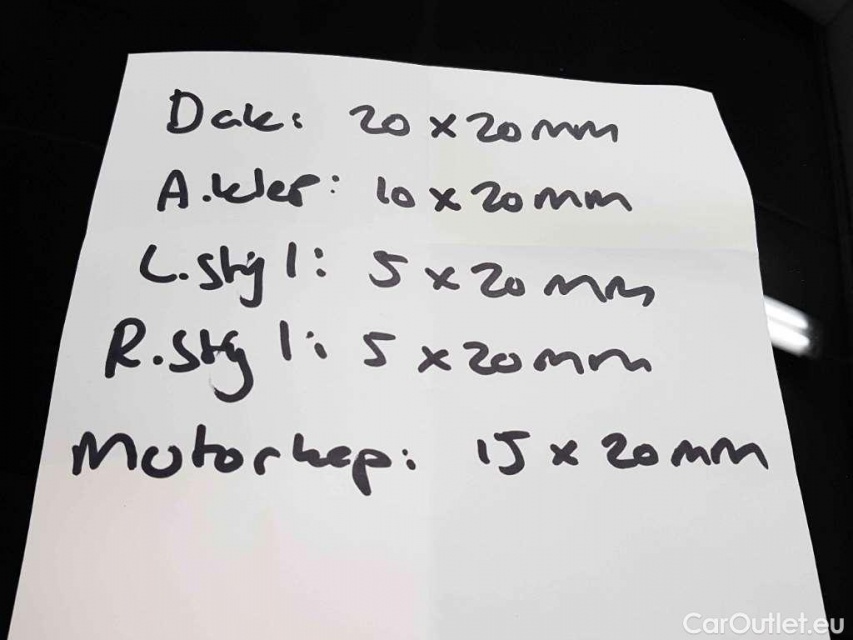 Dak: 20 x 20 mm
A.klep: 10 x 20 mm
L.stijl: 5 x 20 mm
R.stijl: 5 x 20 mm
Motorkap: 15 x 20 mm
CarOutlet.eu